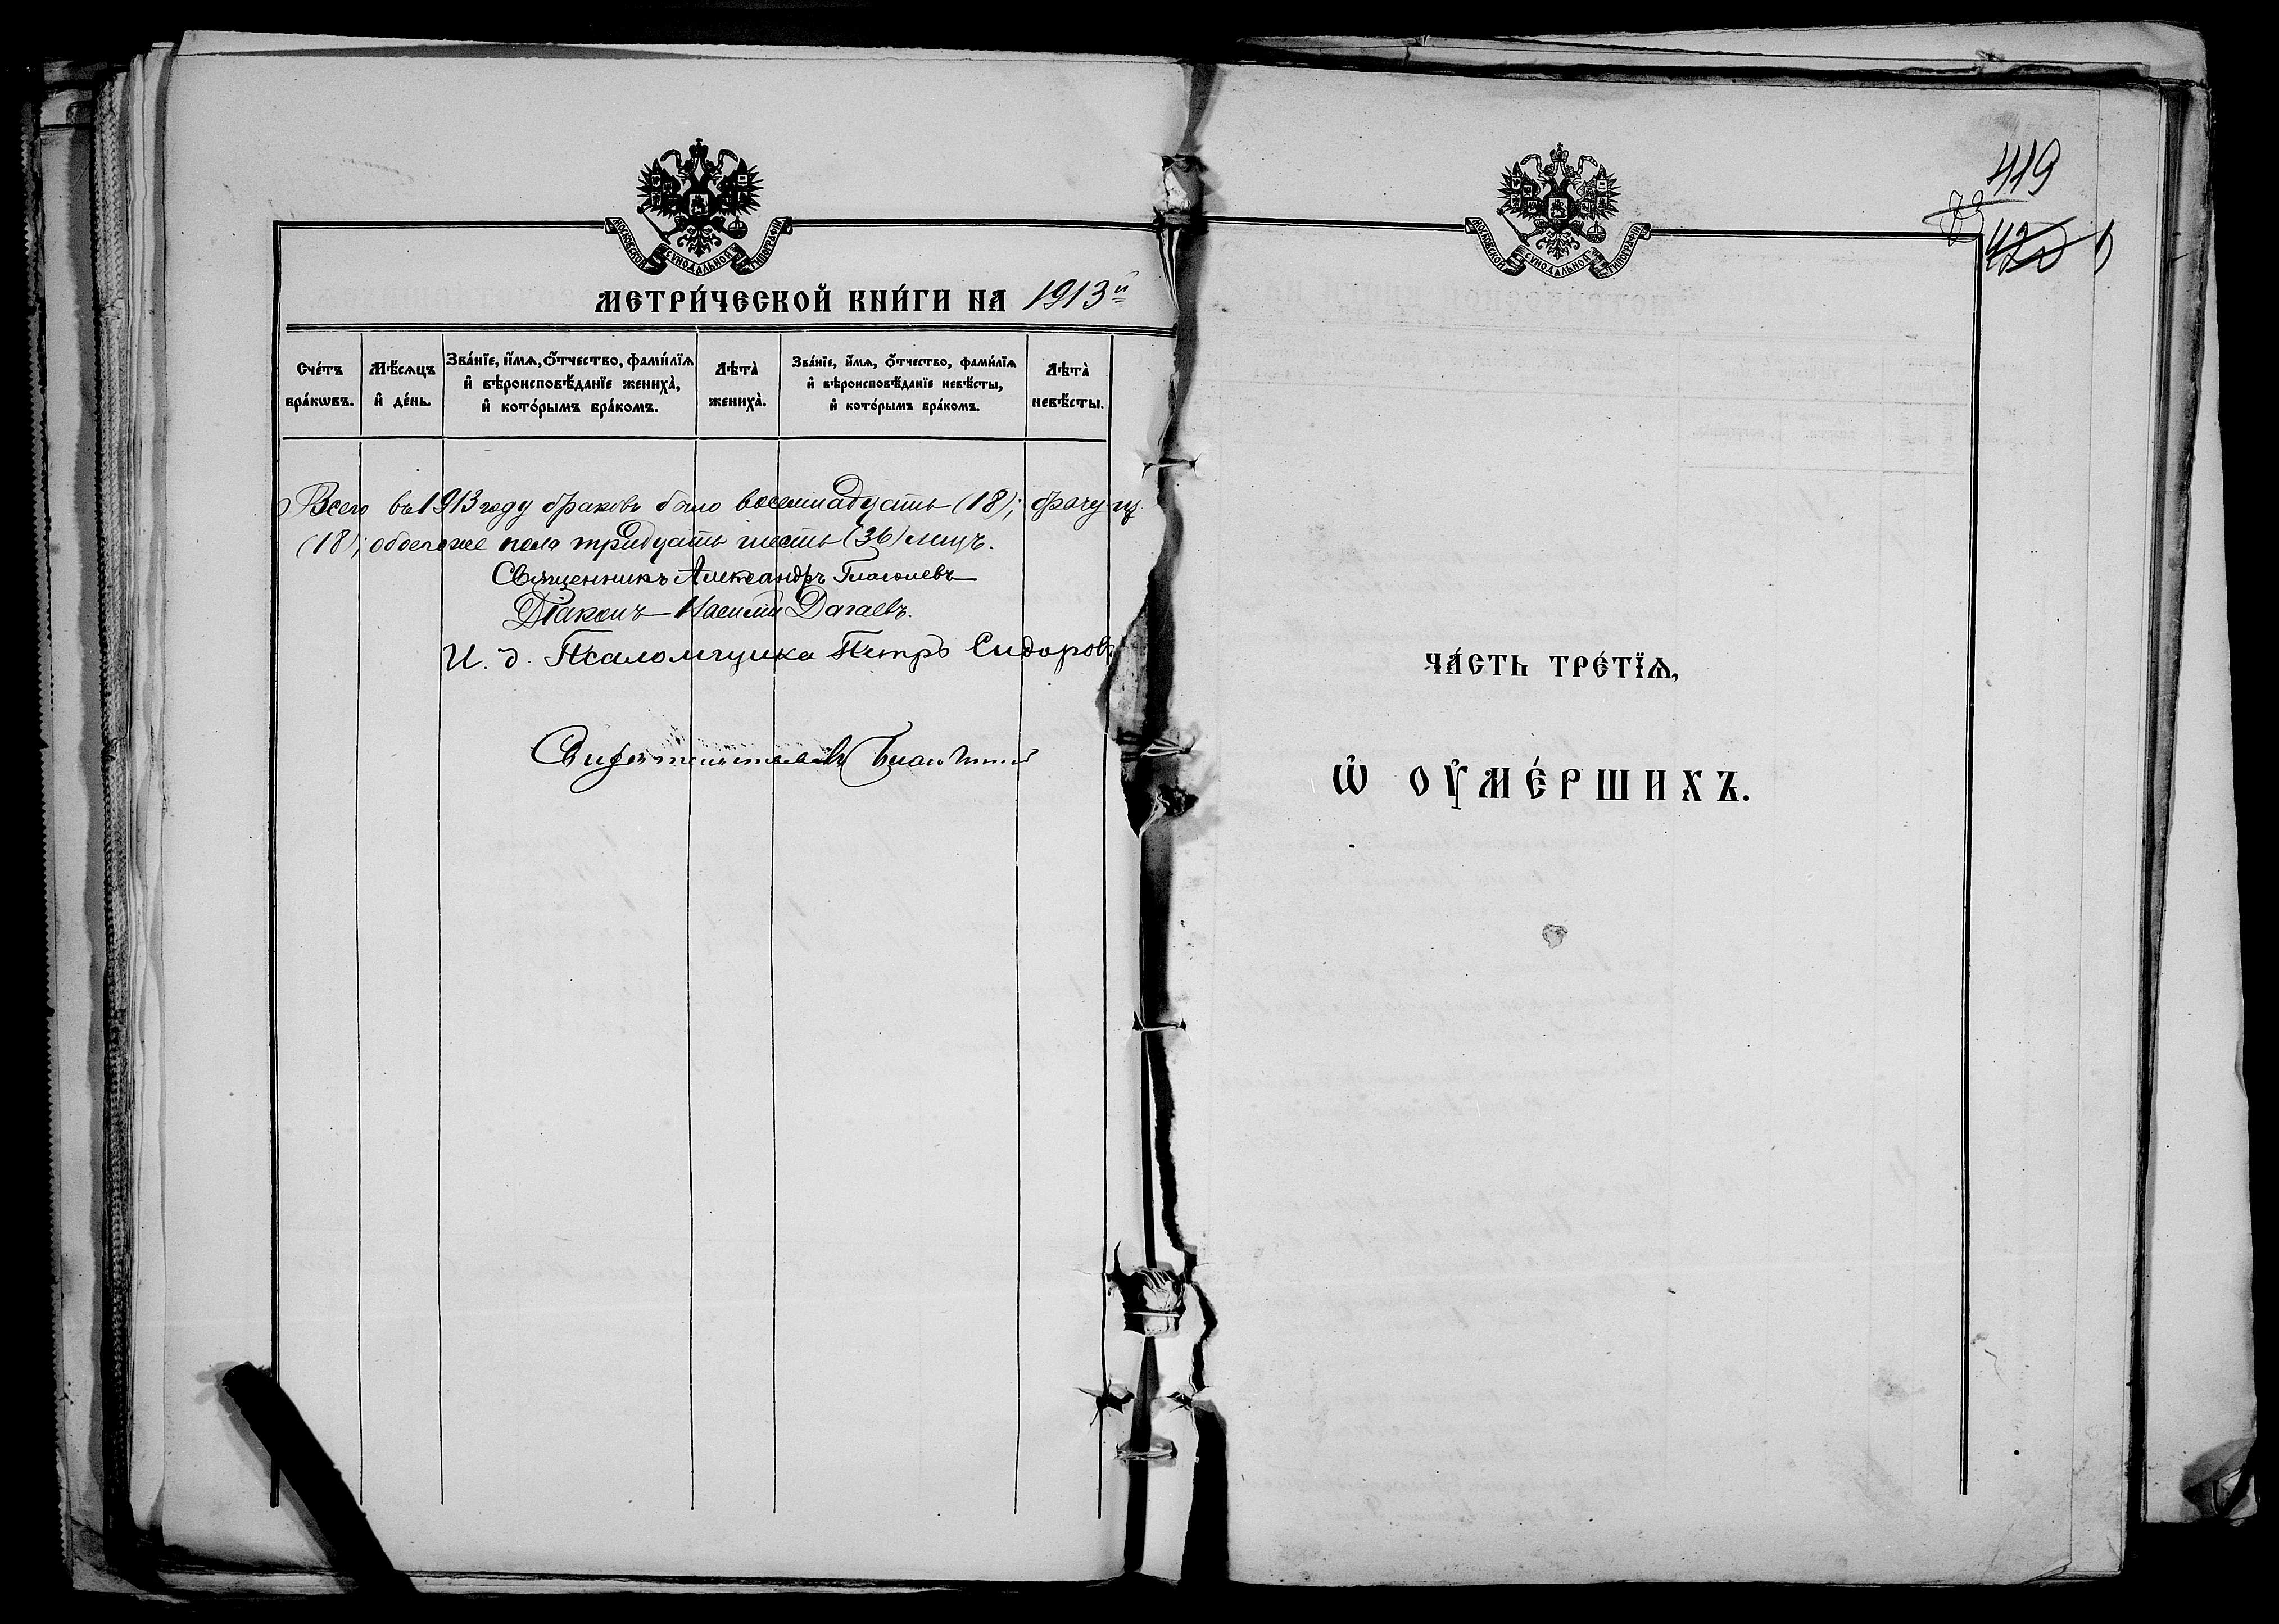 МОСКОВСКОЙ СѴНОДАЛЬНОЙ ТИПОГРАФІИ
МЕТРИ́ЧЕСКОЙ КНИ́ГИ НА 1913й
Сче́тъ бра́кѡвъ.
Мѣ́сѧцъ и҆ де́нь.
Зва́нїе, и҆́мѧ, ѻ҆́тчество, фами́лїѧ
и҆ вѣроисповѣ́данїе жениха̀,
и҆ кото́рымъ бра́комъ.
Лѣта̀ жениха̀.
Зва́нїе, и҆́мѧ, ѻ҆́тчество, фами́лїѧ
и҆ вѣроисповѣ́данїе невѣ́сты,
и҆ кото́рымъ бра́комъ.
Лѣта̀ невѣ́сты.
Всего въ 1913 году браковъ было восемнадцать (18);
(18); обоего же пола тридцать шесть (36) лицъ.
Священникъ Александръ
Діаконъ Василій Дагаевъ.
И. д. Псаломщика Петръ Сидоровъ
МОСКОВСКОЙ СѴНОДАЛЬНОЙ ТИПОГРАФІИ
419
ЧА́СТЬ ТРЕ́ТЇѦ,
Ѡ҆ ОУ҆МЕ́РШИХЪ.